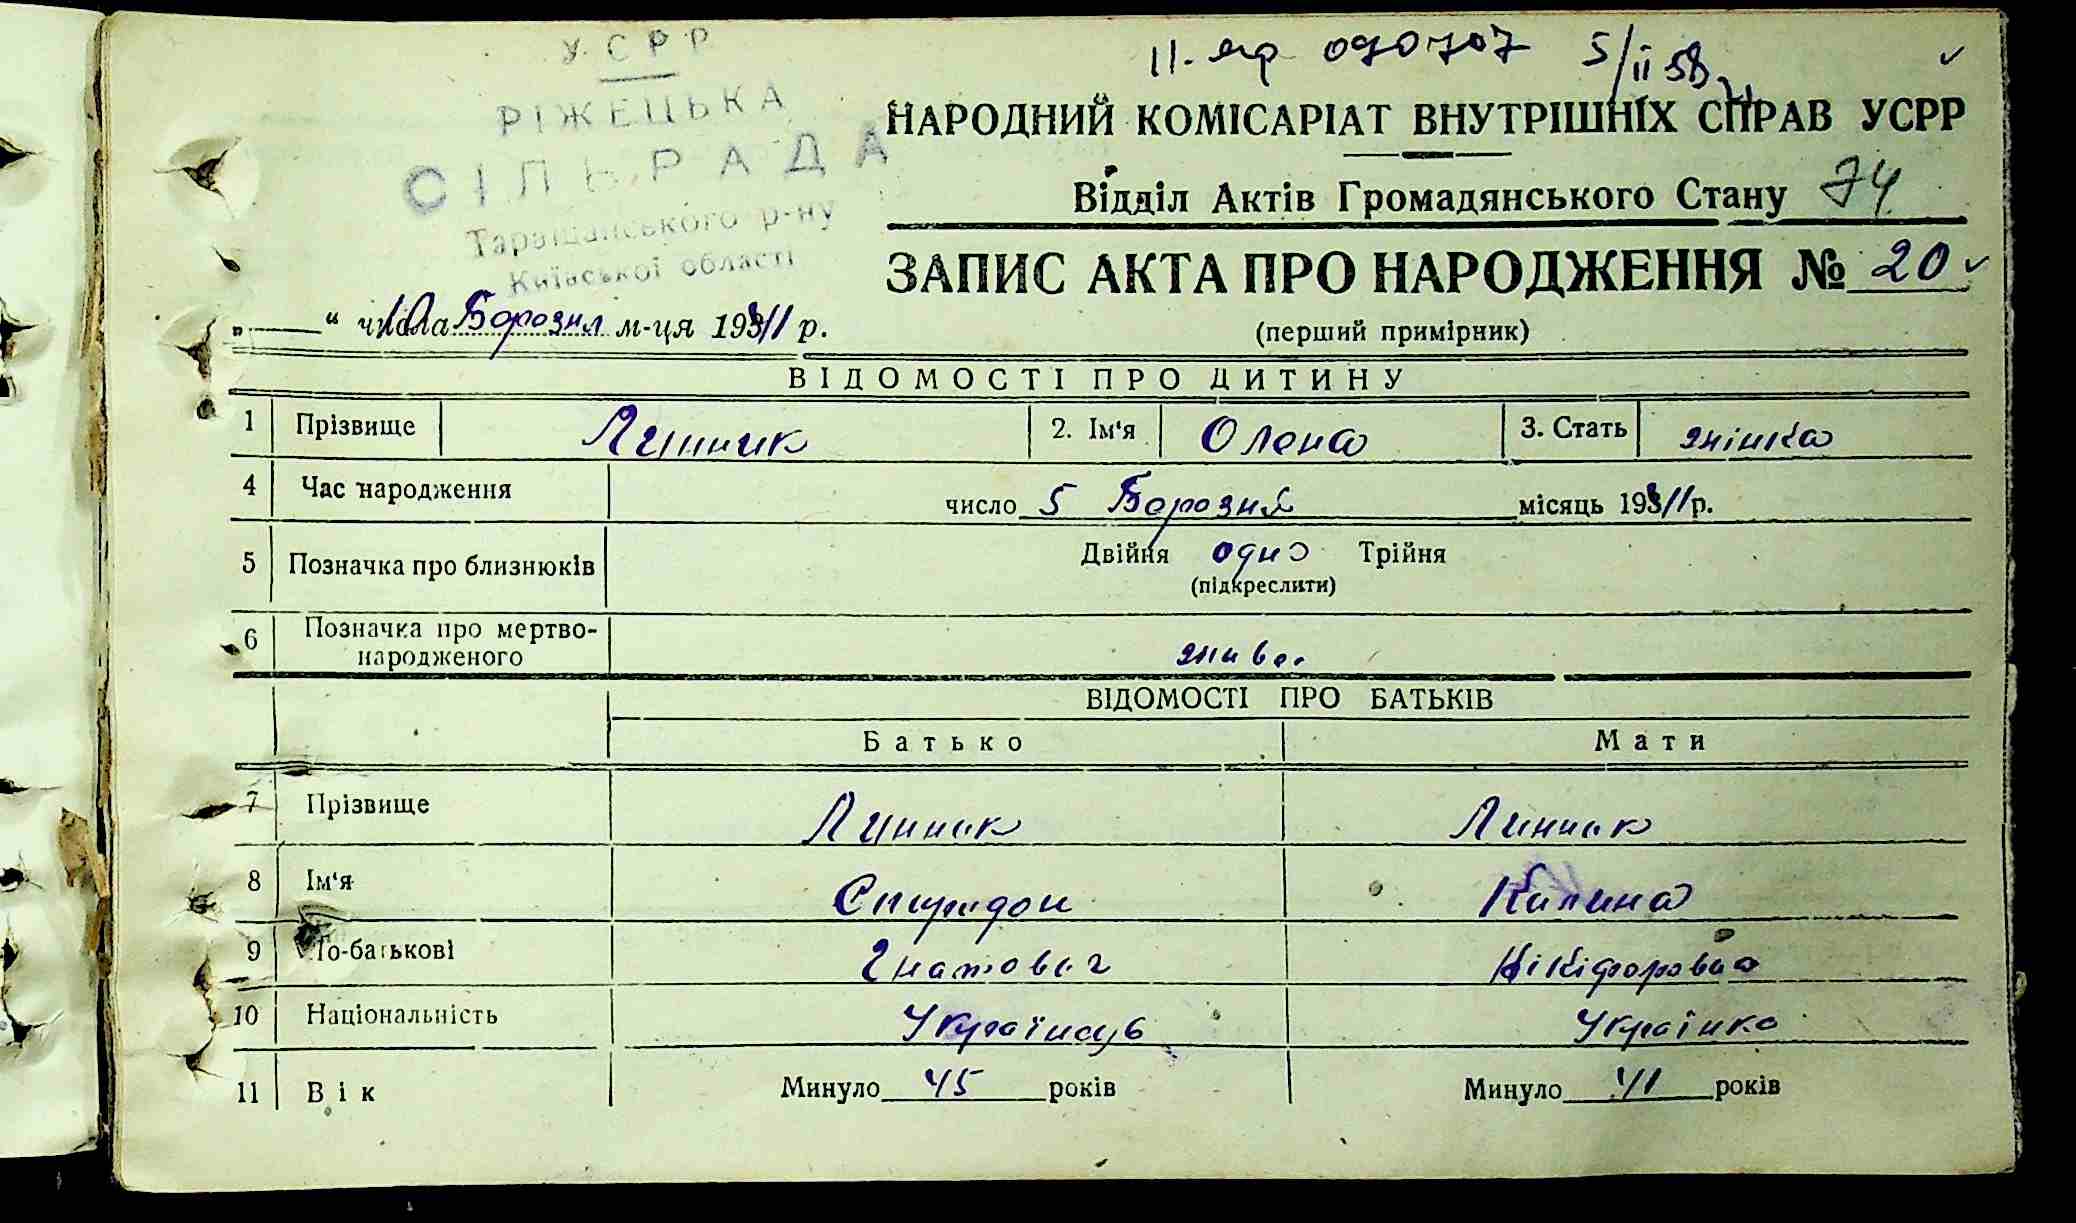 УСРР
РІЖЕЦЬКА
СІЛЬРАДА
Таращанського р-ну
Київської області
070707 5/ii 58
НАРОДНИЙ КОМІСАРІАТ ВНУТРІШНІХ СПРАВ УСРР
Відділ Актів Громадянського Стану 74
ЗАПИС АКТА ПРО НАРОДЖЕННЯ № 20
„ “ 10 числа Борозил м-ця 193 р.
(перший примірник)
ВІДОМОСТІ ПРО ДИТИНУ
1 Прізвище Линник 2. Ім'я Олена 3. Стать жінка
4 Час народження число 5 Борозил місяць 193 р.
5 Позначка про близнюків Двійня одно Трійня
(підкреслити)
6 Позначка про мертво-
народженого живе
ВІДОМОСТІ ПРО БАТЬКІВ
Батько Мати
7 Прізвище Линник Линник
8 Ім'я Спиридон Калина
9 По-батькові Гнатович Нікіфоровна
10 Національність Українець Українка
11 Вік Минуло 45 років Минуло 41 років